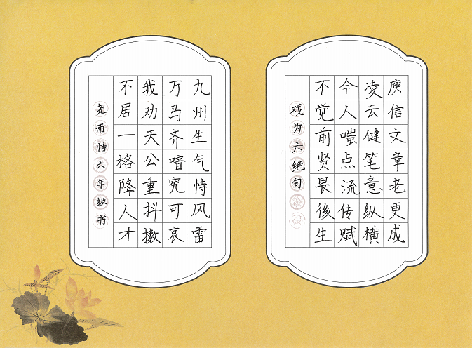 庾信文章老更成
凌云健笔意纵横
今人嗤点流传赋
不觉前贤畏後生
戏为六绝句
九州生气恃风雷
万马齐喑究可哀
我劝天公重抖擞
不居一格降人才